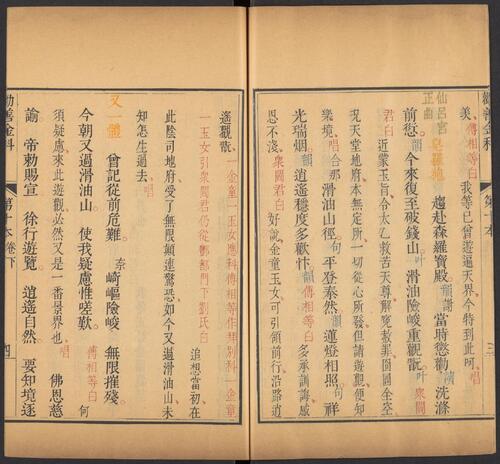 勸善金科 第十本
美、傳相等白 我等已曾遊遍天界今特到此呵、唱
仙呂宮正曲 皂羅袍 趨赴森羅寶殿。韻 當時懲勸讀 洗滌
前愆。韻 今來復至破錢山。叶 滑油險峻重觀翫。叶 衆閻
君白 近蒙玉旨今太乙救苦天尊解寃赦罪囹圄全空
況天堂地府本無定所一切從心所發但請遊觀便知
樂境、唱 合 那滑油山徑。句 平登泰然。韻 蓮燈相照。句 祥
光瑞烟。韻 逍遙穩度多歡忭。韻 傳相等白 多承訓誨感
恩不淺、衆閻君白 好說金童玉女可引領前行沿路逍
遙觀翫 一金童一玉女應科傳相等作拜別科一金童
一玉女引衆閻君仍從酆都門下劉氏白 追想當初在
此陰司地府受了無限顛連驚恐如今又過滑油山未
知怎生過去、唱
又一體 曾記從前危難。奈崎嶇險峻 無限摧殘。
今朝又過滑油山。使我疑慮惟嗟歎。傳相等白 何
須疑慮來此遊觀必然又是一番景界也、唱 佛恩慈
諭 帝勅賜宣 徐行遊覽 逍遙自然 要知境逐
勸善金科 第十本卷下 四